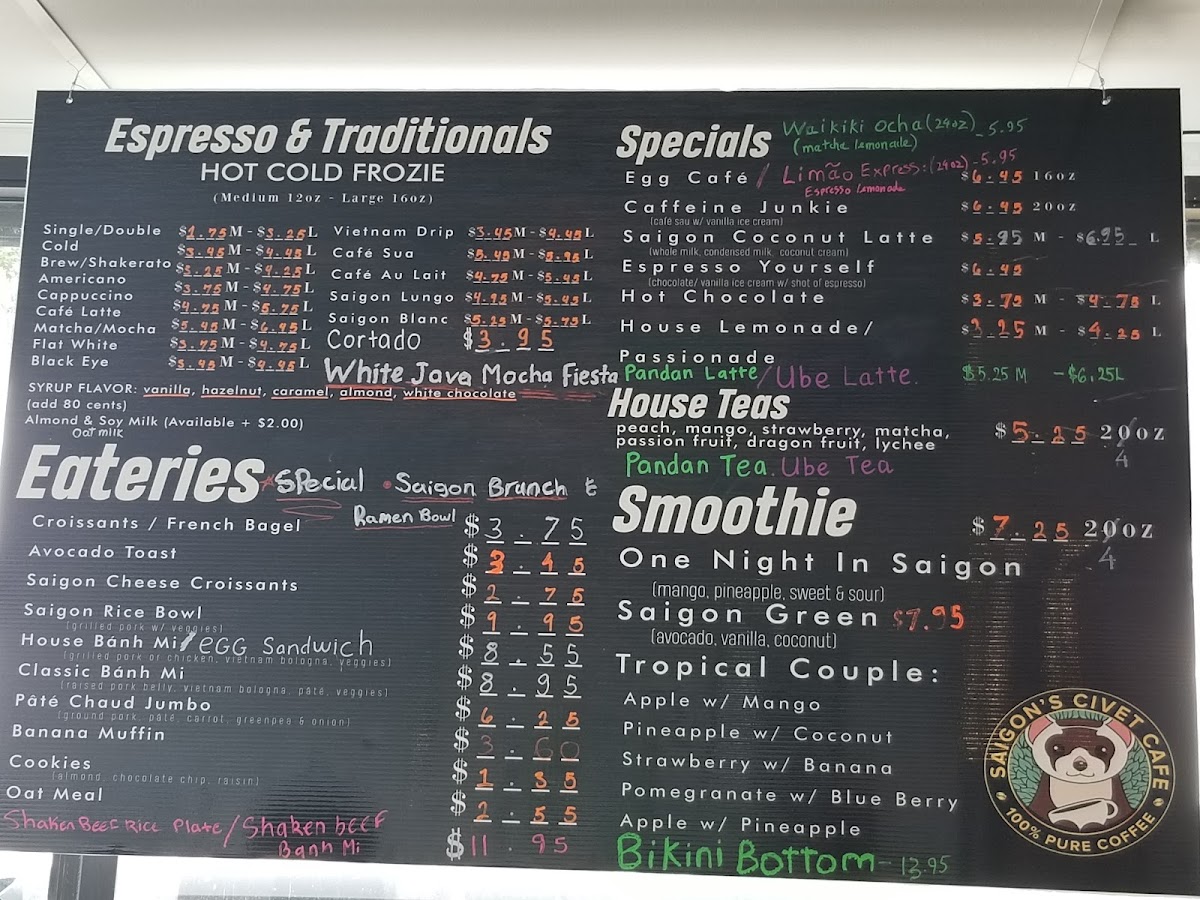 Espresso & Traditionals
HOT COLD FROZIE
(Medium 12oz - Large 16oz)
Single/Double $1.75 M - $3.25 L
Cold $3.45 M - $4.45 L
Brew/Shakerato $3.25 M - $4.25 L
Americano $3.75 M - $4.75 L
Cappuccino
Café Latte $4.75 M - $5.75 L
Matcha/Mocha $5.45 M - $6.45 L
Flat White $3.75 M - $4.75 L
Black Eye $3.45 M - $4.45 L
Vietnam Drip $3.45 M - $4.45 L
Café Sua $5.45 M - $5.95 L
Café Au Lait $4.75 M - $5.45 L
Saigon Lungo $4.95 M - $5.45 L
Saigon Blanc $5.25 M - $5.75 L
Cortado $3.95
White Java Mocha Fiesta
SYRUP FLAVOR: vanilla, hazelnut, caramel, almond, white chocolate
(add 80 cents)
Almond & Soy Milk (Available + $2.00)
Oat milk
Eateries
Special • Saigon Brunch &
Ramen Bowl
Croissants / French Bagel $3.75
Avocado Toast $3.45
Saigon Cheese Croissants $2.75
Saigon Rice Bowl $9.95
(grilled pork w/ veggies)
House Bánh Mi / eGG Sandwich $8.55
(grilled pork or chicken, vietnam bologna, veggies)
Classic Bánh Mi $8.95
(raised pork belly, vietnam bologna, pâté, veggies)
Pâté Chaud Jumbo $6.25
(ground pork, pâté, carrot, greenpea & onion)
Banana Muffin $3.60
Cookies $1.35
(almond, chocolate chip, raisin)
Oat Meal $2.55
Shaken Beef Rice Plate / Shaken beef
Banh Mi $11.95
Specials
Waikiki Ocha (24oz) - 5.95
(matcha lemonade)
Egg Café / Limão Express: (24oz) - 5.95
$6.45 16oz
Espresso Lemonade
Caffeine Junkie $6.45 20oz
(café sau w/ vanilla ice cream)
Saigon Coconut Latte $5.95 M - $6.95 L
(whole milk, condensed milk, coconut cream)
Espresso Yourself $6.45
(chocolate/ vanilla ice cream w/ shot of espresso)
Hot Chocolate $3.75 M - $4.75 L
House Lemonade/ $3.25 M - $4.25 L
Passionade
Pandan Latte / Ube Latte. $5.25 M - $6.25 L
House Teas
peach, mango, strawberry, matcha, $5.25 20oz
passion fruit, dragon fruit, lychee 4
Pandan Tea. Ube Tea
Smoothie $7.25 20oz
4
One Night In Saigon
(mango, pineapple, sweet & sour)
Saigon Green $7.95
(avocado, vanilla, coconut)
Tropical Couple:
Apple w/ Mango
Pineapple w/ Coconut
Strawberry w/ Banana
Pomegranate w/ Blue Berry
Apple w/ Pineapple
Bikini Bottom - 13.95
SAIGON'S CIVET CAFE
100% PURE COFFEE